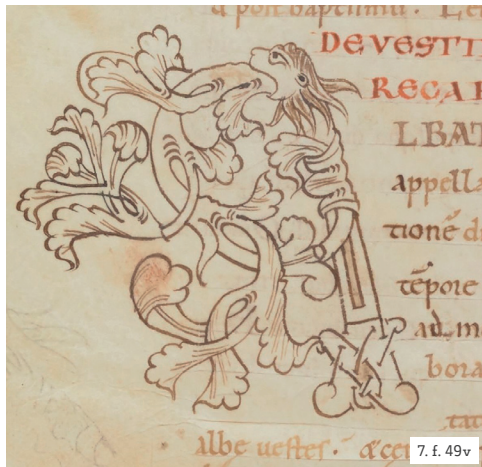 d post baptismū. Le
DE VESTI
REGA
LBAT
appella
tionē d
tēpore
ad. m
bora
tat
albe uestes.
7. f. 49v